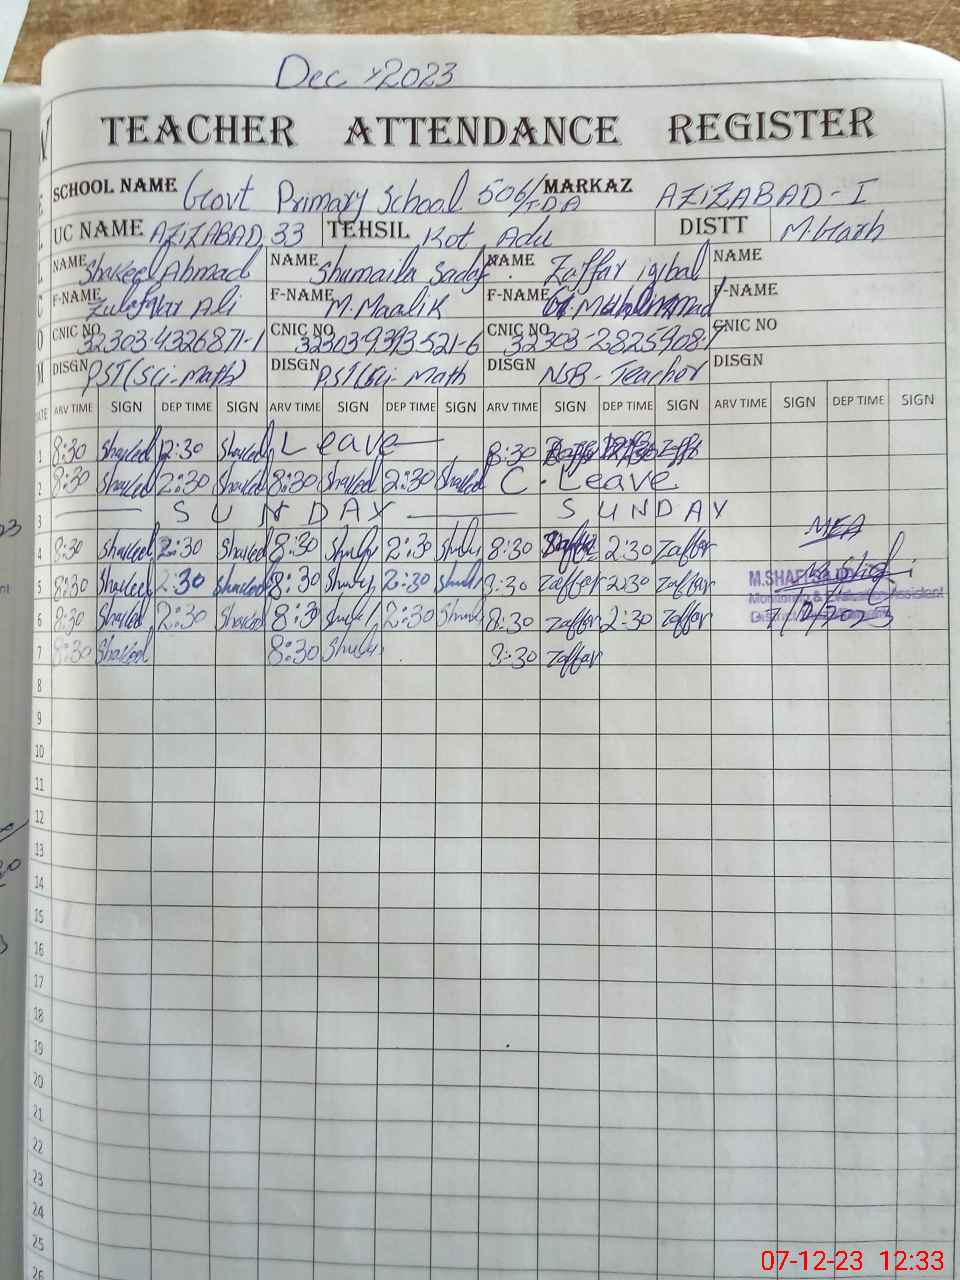 Dec, 2023
TEACHER ATTENDANCE REGISTER
SCHOOL NAME Govt Primary School 506/TDA MARKAZ AZIZABAD-I
UC NAME AZIZABAD 33 TEHSIL Kot Adu DISTT M.Garh
NAME Shakeel Ahmad NAME Shumaila Sadaf NAME Zaffar iqbal NAME
F-NAME Zulifqar Ali F-NAME M. Maalik F-NAME F-NAME
CNIC NO 32303-4326871-1 CNIC NO 32303-9393521-6 CNIC NO 32303-2825908-7 CNIC NO
DISGN PST(Sci-Math) DISGN PST(Sci-Math DISGN NSB-Teacher DISGN
DATE ARV TIME SIGN DEP TIME SIGN ARV TIME SIGN DEP TIME SIGN ARV TIME SIGN DEP TIME SIGN ARV TIME SIGN DEP TIME SIGN
1 8:30 Shakeel 2:30 Shakeel Leave 8:30 Zaffar
2 8:30 Shakeel 2:30 Shakeel 8:30 Shakeel 2:30 Shakeel C. Leave
3 SUNDAY SUNDAY
4 8:30 Shakeel 2:30 Shakeel 8:30 2:30 8:30 Zaffar 2:30 Zaffar MEA
5 8:30 Shakeel 2:30 Shakeel 8:30 2:30 8:30 Zaffar 2:30 Zaffar M.SHAFI
Monitoring & Evaluation Assistant
6 8:30 Shakeel 2:30 Shakeel 8:30 2:30 8:30 Zaffar 2:30 Zaffar 7/12/2023
7 8:30 Shakeel 8:30 8:30 Zaffar
8
9
10
11
12
13
14
15
16
17
18
19
20
21
22
23
24
25
26
07-12-23 12:33